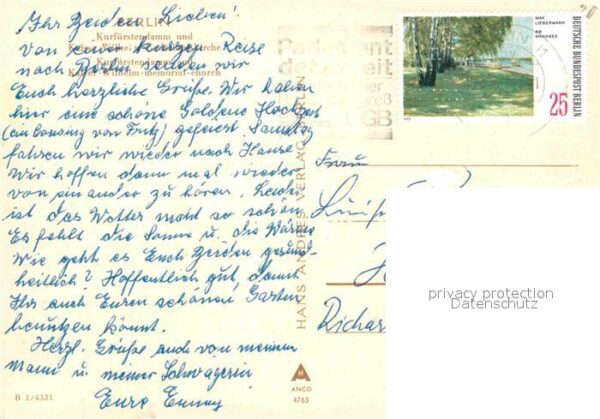 Ihr Beiden Lieben!
BERLIN
Kurfürstendamm und
Kaiser-Wilhelm-memorial-church
Von einer kurzen Reise
nach Berlin senden wir
Euch herzliche Grüße. Wir haben
hier eine schöne Goldene Hochzeit
(ein Cousing von Fritz) gefeiert. Samstag
fahren wir wieder nach Hause
Wir hoffen dann mal wieder
von einander zu hören. Leider
ist das Wetter nicht so schön
Es fehlt die Sonne u. die Wärme
Wie geht es Euch Beiden gesund-
heitlich? Hoffentlich gut, damit
Ihr auch Euren schönen Garten
benutzen könnt.
Herzl. Grüße auch von meinem
Mann u. meiner Schwägerin
Eure
B 1/4331
HANS ANDRES VERLAG BERLIN
H
ANCO
4763
MAX
LIEBERMANN
AM
WANNSEE
DEUTSCHE BUNDESPOST BERLIN
25
Frau
Richar
privacy protection
Datenschutz